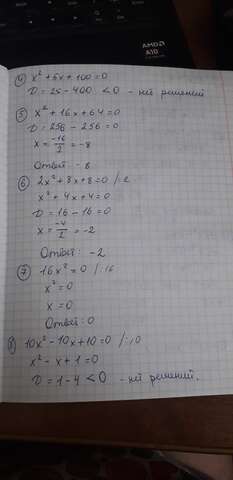 AMD
A10
④ x² + 5x + 100 = 0
D = 25 - 400 < 0 - нет решений
⑤ x² + 16x + 64 = 0
D = 256 - 256 = 0
x = -16/2 = -8
Ответ: -8
⑥ 2x² + 8x + 8 = 0 /:2
x² + 4x + 4 = 0
D = 16 - 16 = 0
x = -4/2 = -2
Ответ: -2
⑦ 16x² = 0 /:16
x² = 0
x = 0
Ответ: 0
⑧ 10x² - 10x + 10 = 0 /:10
x² - x + 1 = 0
D = 1 - 4 < 0 - нет решений.